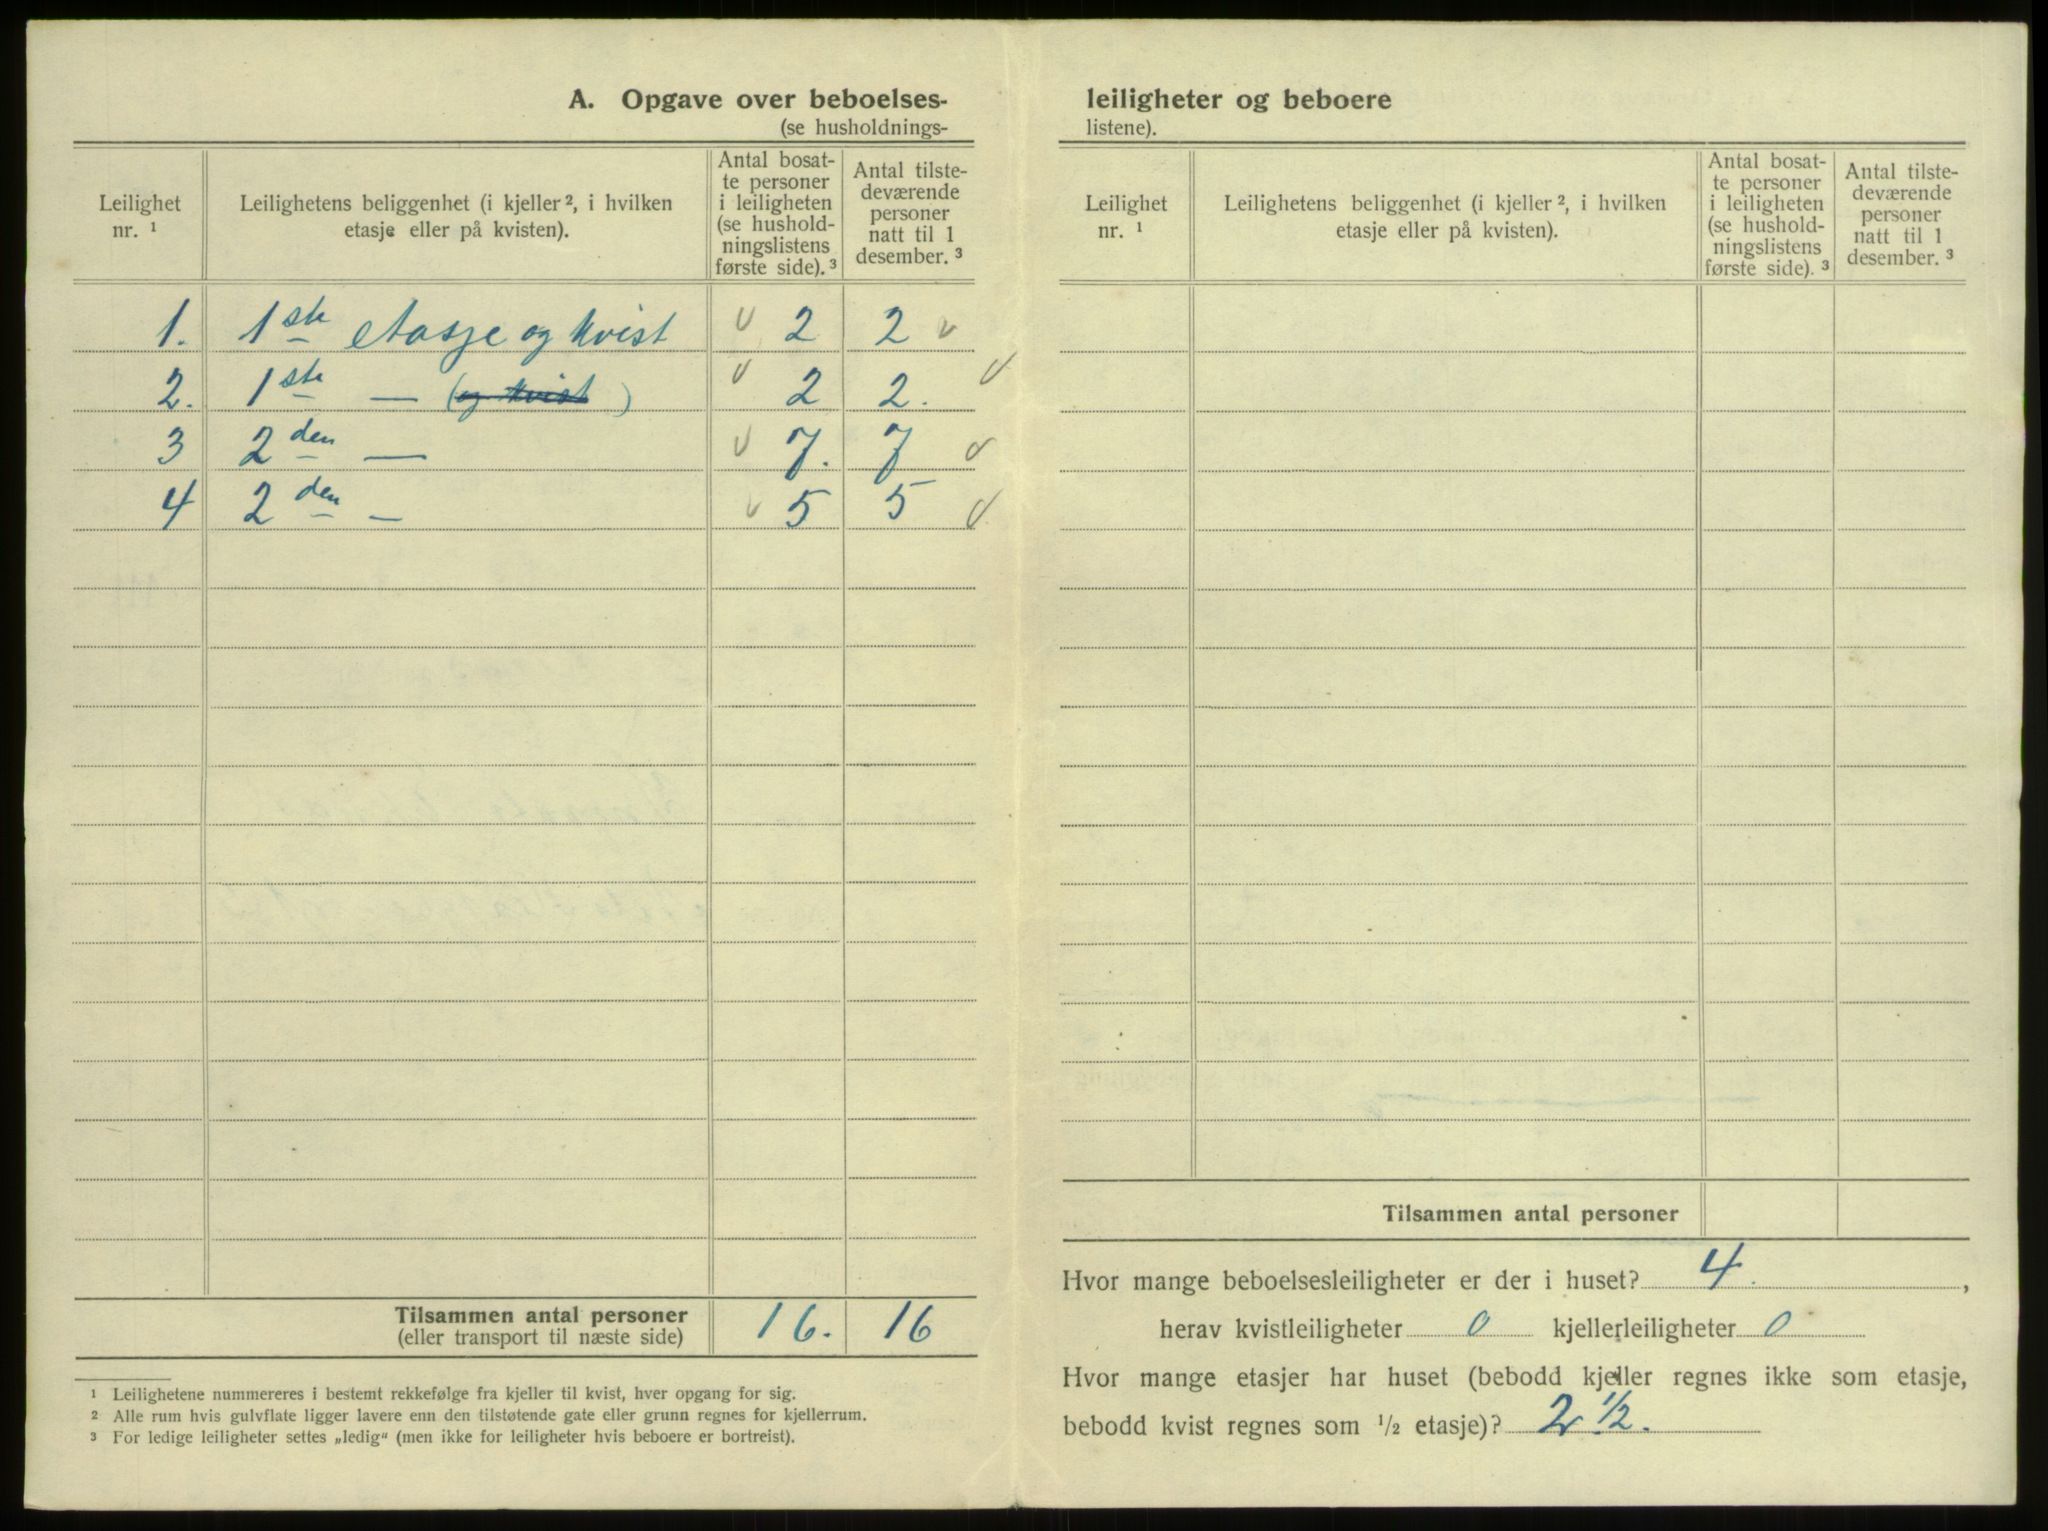 A. Opgave over beboelses-
(se husholdnings-
Leilighet nr. ¹
Leilighetens beliggenhet (i kjeller ², i hvilken
etasje eller på kvisten).
Antal bosat-
te personer
i leiligheten
(se hushold-
ningslistens
første side). ³
Antal tilste-
deværende
personer
natt til 1
desember. ³
1. 1ste etasje og kvist 2 2
2. 1ste — (og kvist) 2 2.
3 2den — 7. 7
4 2den — 5 5
Tilsammen antal personer 16. 16
(eller transport til næste side)
¹ Leilighetene nummereres i bestemt rekkefølge fra kjeller til kvist, hver opgang for sig.
² Alle rum hvis gulvflate ligger lavere enn den tilstøtende gate eller grunn regnes for kjellerrum.
³ For ledige leiligheter settes „ledig“ (men ikke for leiligheter hvis beboere er bortreist).
leiligheter og beboere
listene).
Leilighet nr. ¹
Leilighetens beliggenhet (i kjeller ², i hvilken
etasje eller på kvisten).
Antal bosat-
te personer
i leiligheten
(se hushold-
ningslistens
første side). ³
Antal tilste-
deværende
personer
natt til 1
desember. ³
Tilsammen antal personer
Hvor mange beboelsesleiligheter er der i huset? 4.,
herav kvistleiligheter 0 kjellerleiligheter 0
Hvor mange etasjer har huset (bebodd kjeller regnes ikke som etasje,
bebodd kvist regnes som ½ etasje)? 2 ½.